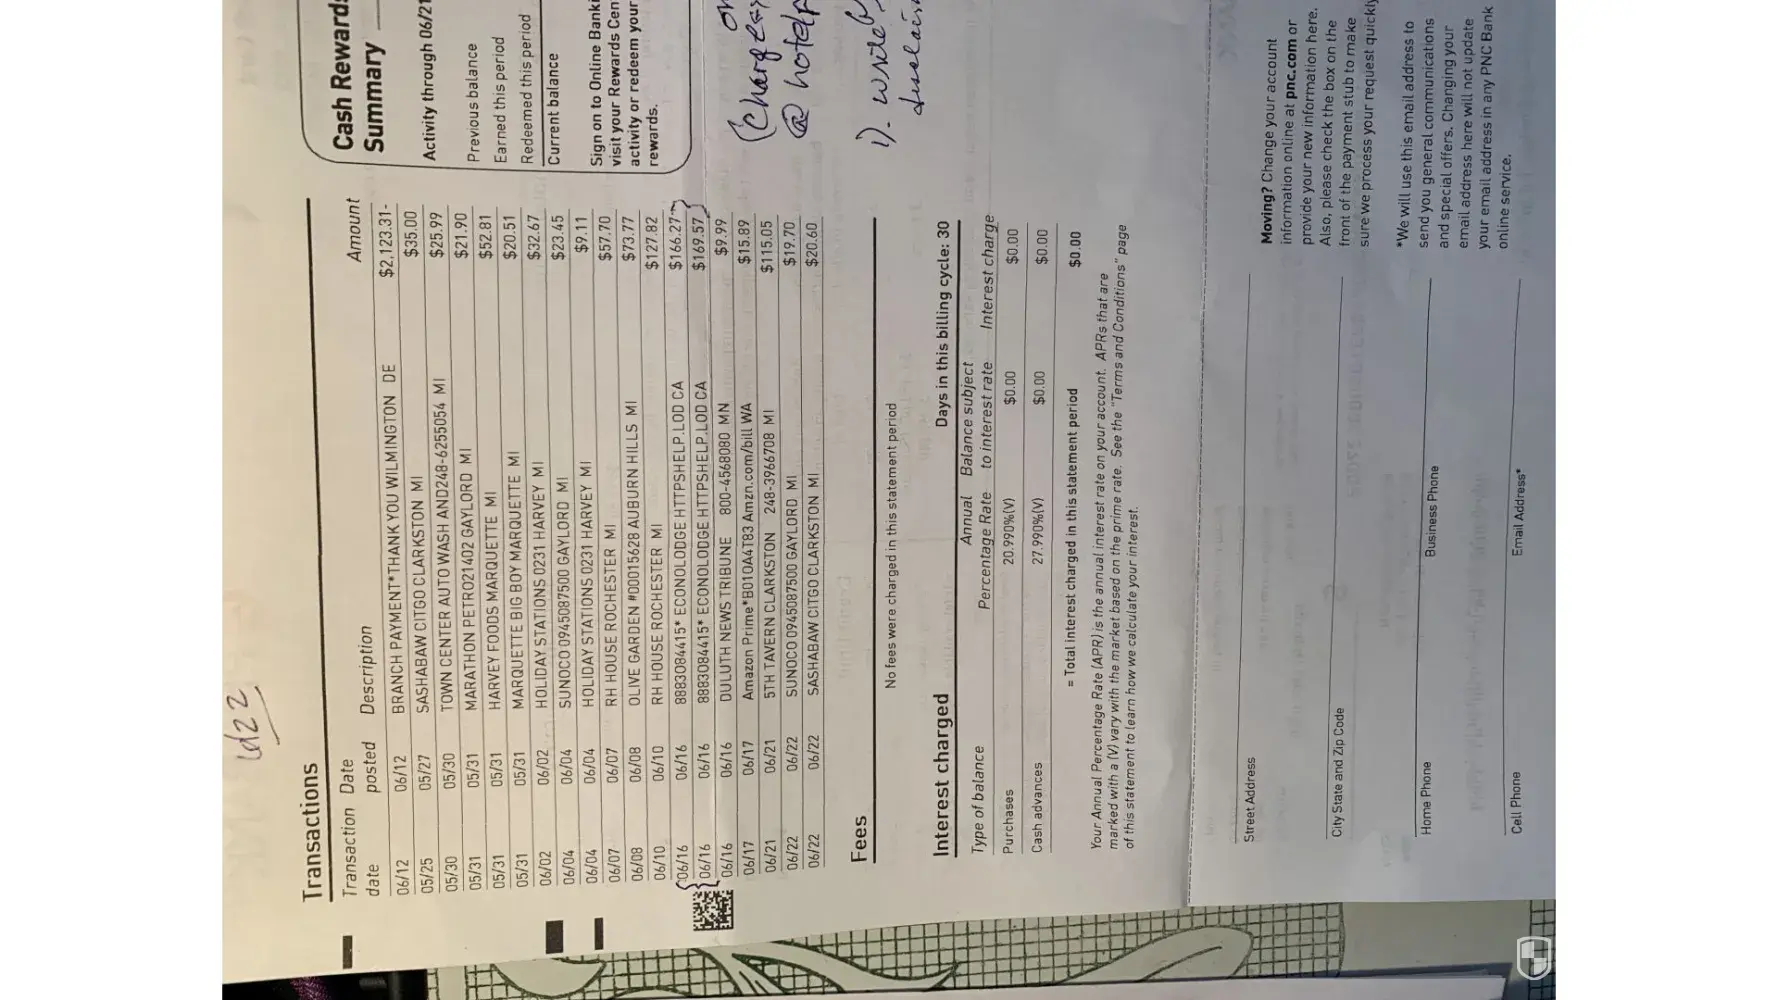 6d22
Transactions
Transaction date Date posted Description Amount
06/12 06/12 BRANCH PAYMENT*THANK YOU WILMINGTON DE $2,123.31-
05/25 05/27 SASHABAW CITGO CLARKSTON MI $35.00
05/30 05/30 TOWN CENTER AUTO WASH AND248-6255054 MI $25.99
05/31 05/31 MARATHON PETRO21402 GAYLORD MI $21.90
05/31 05/31 HARVEY FOODS MARQUETTE MI $52.81
05/31 05/31 MARQUETTE BIG BOY MARQUETTE MI $20.51
06/02 06/02 HOLIDAY STATIONS 0231 HARVEY MI $32.67
06/04 06/04 SUNOCO 0945087500 GAYLORD MI $23.45
06/04 06/04 HOLIDAY STATIONS 0231 HARVEY MI $9.11
06/07 06/07 RH HOUSE ROCHESTER MI $57.70
06/08 06/08 OLIVE GARDEN #00015628 AUBURN HILLS MI $73.77
06/10 06/10 RH HOUSE ROCHESTER MI $127.82
06/16 06/16 8883084415* ECONOLODGE HTTPSHELP.LOD CA $166.27
06/16 06/16 8883084415* ECONOLODGE HTTPSHELP.LOD CA $169.57
06/16 06/16 DULUTH NEWS TRIBUNE 800-4568080 MN $9.99
06/17 06/17 Amazon Prime*B010A4T83 Amzn.com/bill WA $15.89
06/21 06/21 5TH TAVERN CLARKSTON 248-3966708 MI $115.05
06/22 06/22 SUNOCO 0945087500 GAYLORD MI $19.70
06/22 06/22 SASHABAW CITGO CLARKSTON MI $20.60
Fees
No fees were charged in this statement period
Interest charged Days in this billing cycle: 30
Type of balance Annual Percentage Rate Balance subject to interest rate Interest charge
Purchases 20.990%(V) $0.00 $0.00
Cash advances 27.990%(V) $0.00 $0.00
= Total interest charged in this statement period $0.00
Your Annual Percentage Rate (APR) is the annual interest rate on your account. APRs that are
marked with a (V) vary with the market based on the prime rate. See the "Terms and Conditions" page
of this statement to learn how we calculate your interest.
Cash Rewards
Summary
Activity through 06/21
Previous balance
Earned this period
Redeemed this period
Current balance
Sign on to Online Banki
visit your Rewards Cen
activity or redeem your
rewards.
(charges on
@ hotel
1). write
Street Address
City State and Zip Code
Home Phone Business Phone
Cell Phone Email Address*
Moving? Change your account
information online at pnc.com or
provide your new information here.
Also, please check the box on the
front of the payment stub to make
sure we process your request quickly
*We will use this email address to
send you general communications
and special offers. Changing your
email address here will not update
your email address in any PNC Bank
online service.